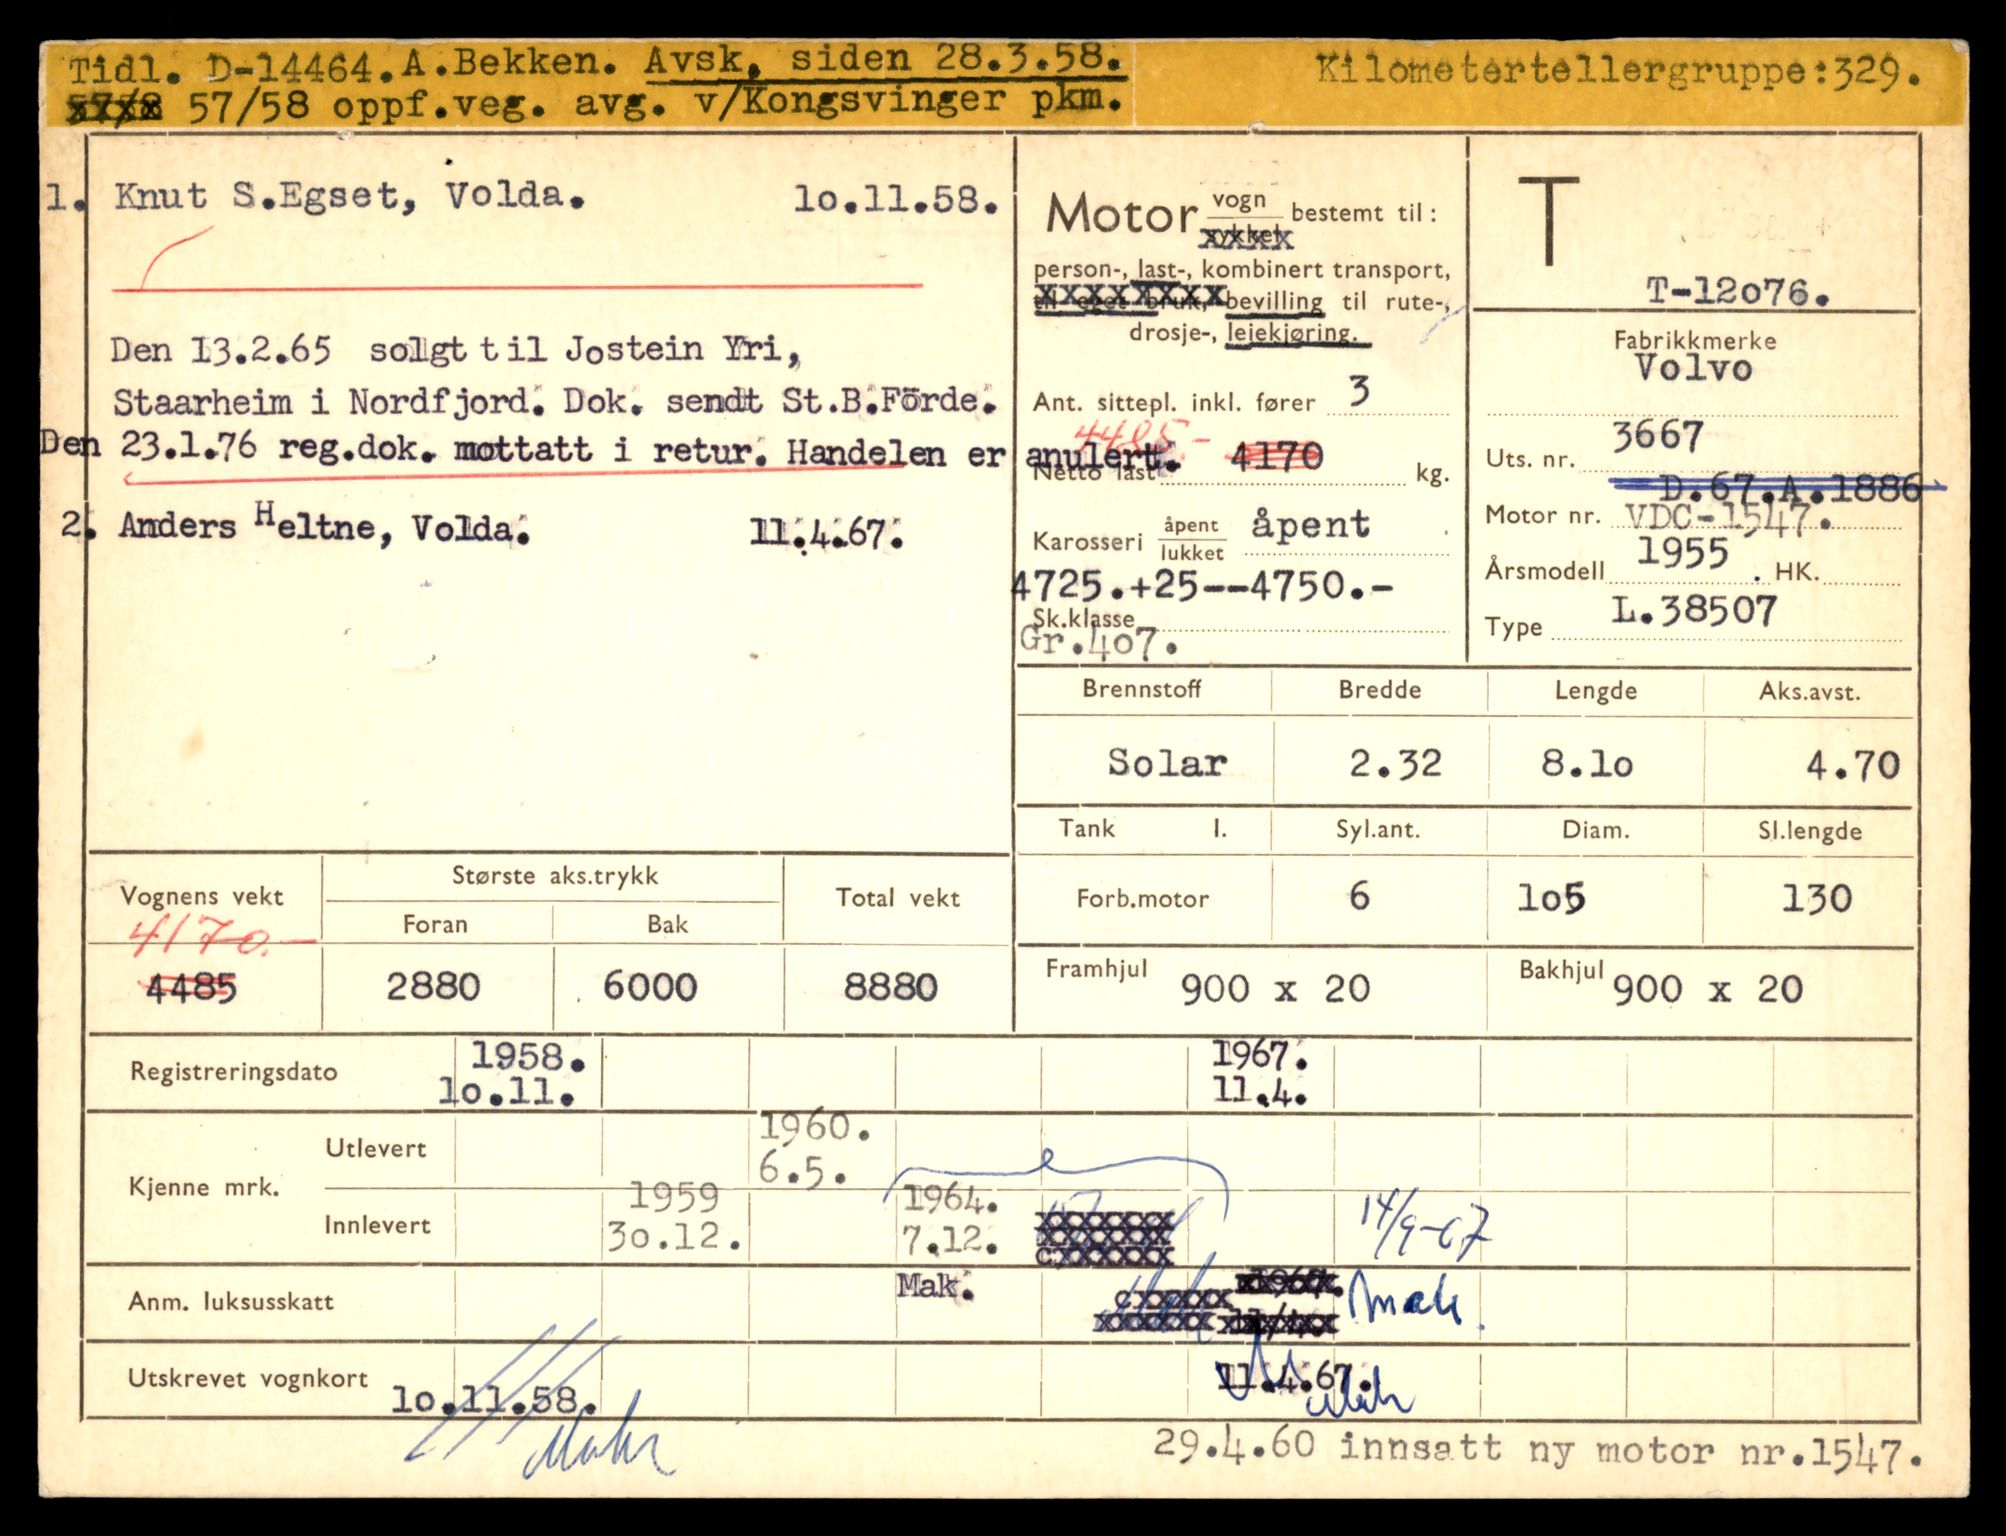 Tidl. D-14464. A.Bekken. Avsk, siden 28.3.58.
57/58 oppf.veg. avg. v/Kongsvinger pkm.
Kilometertellergruppe:329.
1. Knut S.Egset, Volda. 10.11.58.
Den 13.2.65 solgt til Jostein Yri,
Staarheim i Nordfjord. Dok. sendt St.B.Förde.
Den 23.1.76 reg.dok. mottatt i retur. Handelen er anulert.
2. Anders Heltne, Volda. 11.4.67.
Motor vogn bestemt til:
sykkel
person-, last-, kombinert transport,
til eget bruk, bevilling til rute-,
drosje-, leiekjøring.
Ant. sittepl. inkl. fører 3
4485.-
Netto last 4170 kg.
Karosseri åpent/lukket åpent
4725.+25--4750.-
Sk.klasse
Gr.407.
T
T-12076.
Fabrikkmerke
Volvo
Uts. nr. 3667
D.67.A.1886
Motor nr. VDC-1547.
Årsmodell 1955 . HK.
Type L.38507
Brennstoff Bredde Lengde Aks.avst.
Solar 2.32 8.10 4.70
Tank l. Syl.ant. Diam. Sl.lengde
Forb.motor 6 105 130
Framhjul 900 x 20 Bakhjul 900 x 20
Vognens vekt Største aks.trykk Total vekt
Foran Bak
4170.-
4485 2880 6000 8880
Registreringsdato 1958. 1967.
10.11. 11.4.
Kjenne mrk.
Utlevert 1960.
6.5.
Innlevert 1959 1964. 14/9-67
30.12. 7.12.
Anm. luksusskatt Mak. Mak.
Utskrevet vognkort 10.11.58. 11.4.67.
29.4.60 innsatt ny motor nr.1547.